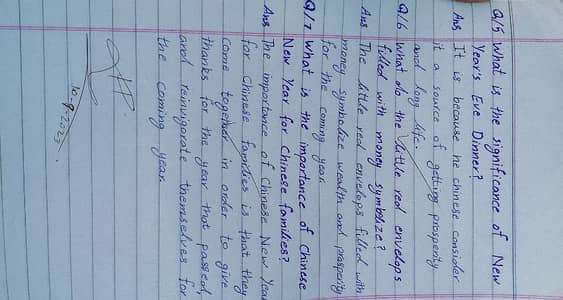 Q/5 What is the significance of New
Year's Eve Dinner?
Ans It is because he chinese consider
it a source of getting prosperity
and long life.
Q/6 What do the little red envelops
filled with money symbolize?
Ans The little red envelops filled with
money symbolize wealth and prosperity
for the coming year.
Q/7 What is the importance of Chinese
New Year for Chinese families?
Ans The importance of Chinese New Year
for Chinese families is that they
come together in order to give
thanks for the year that passed,
and reinvigorate themselves for
the coming year.